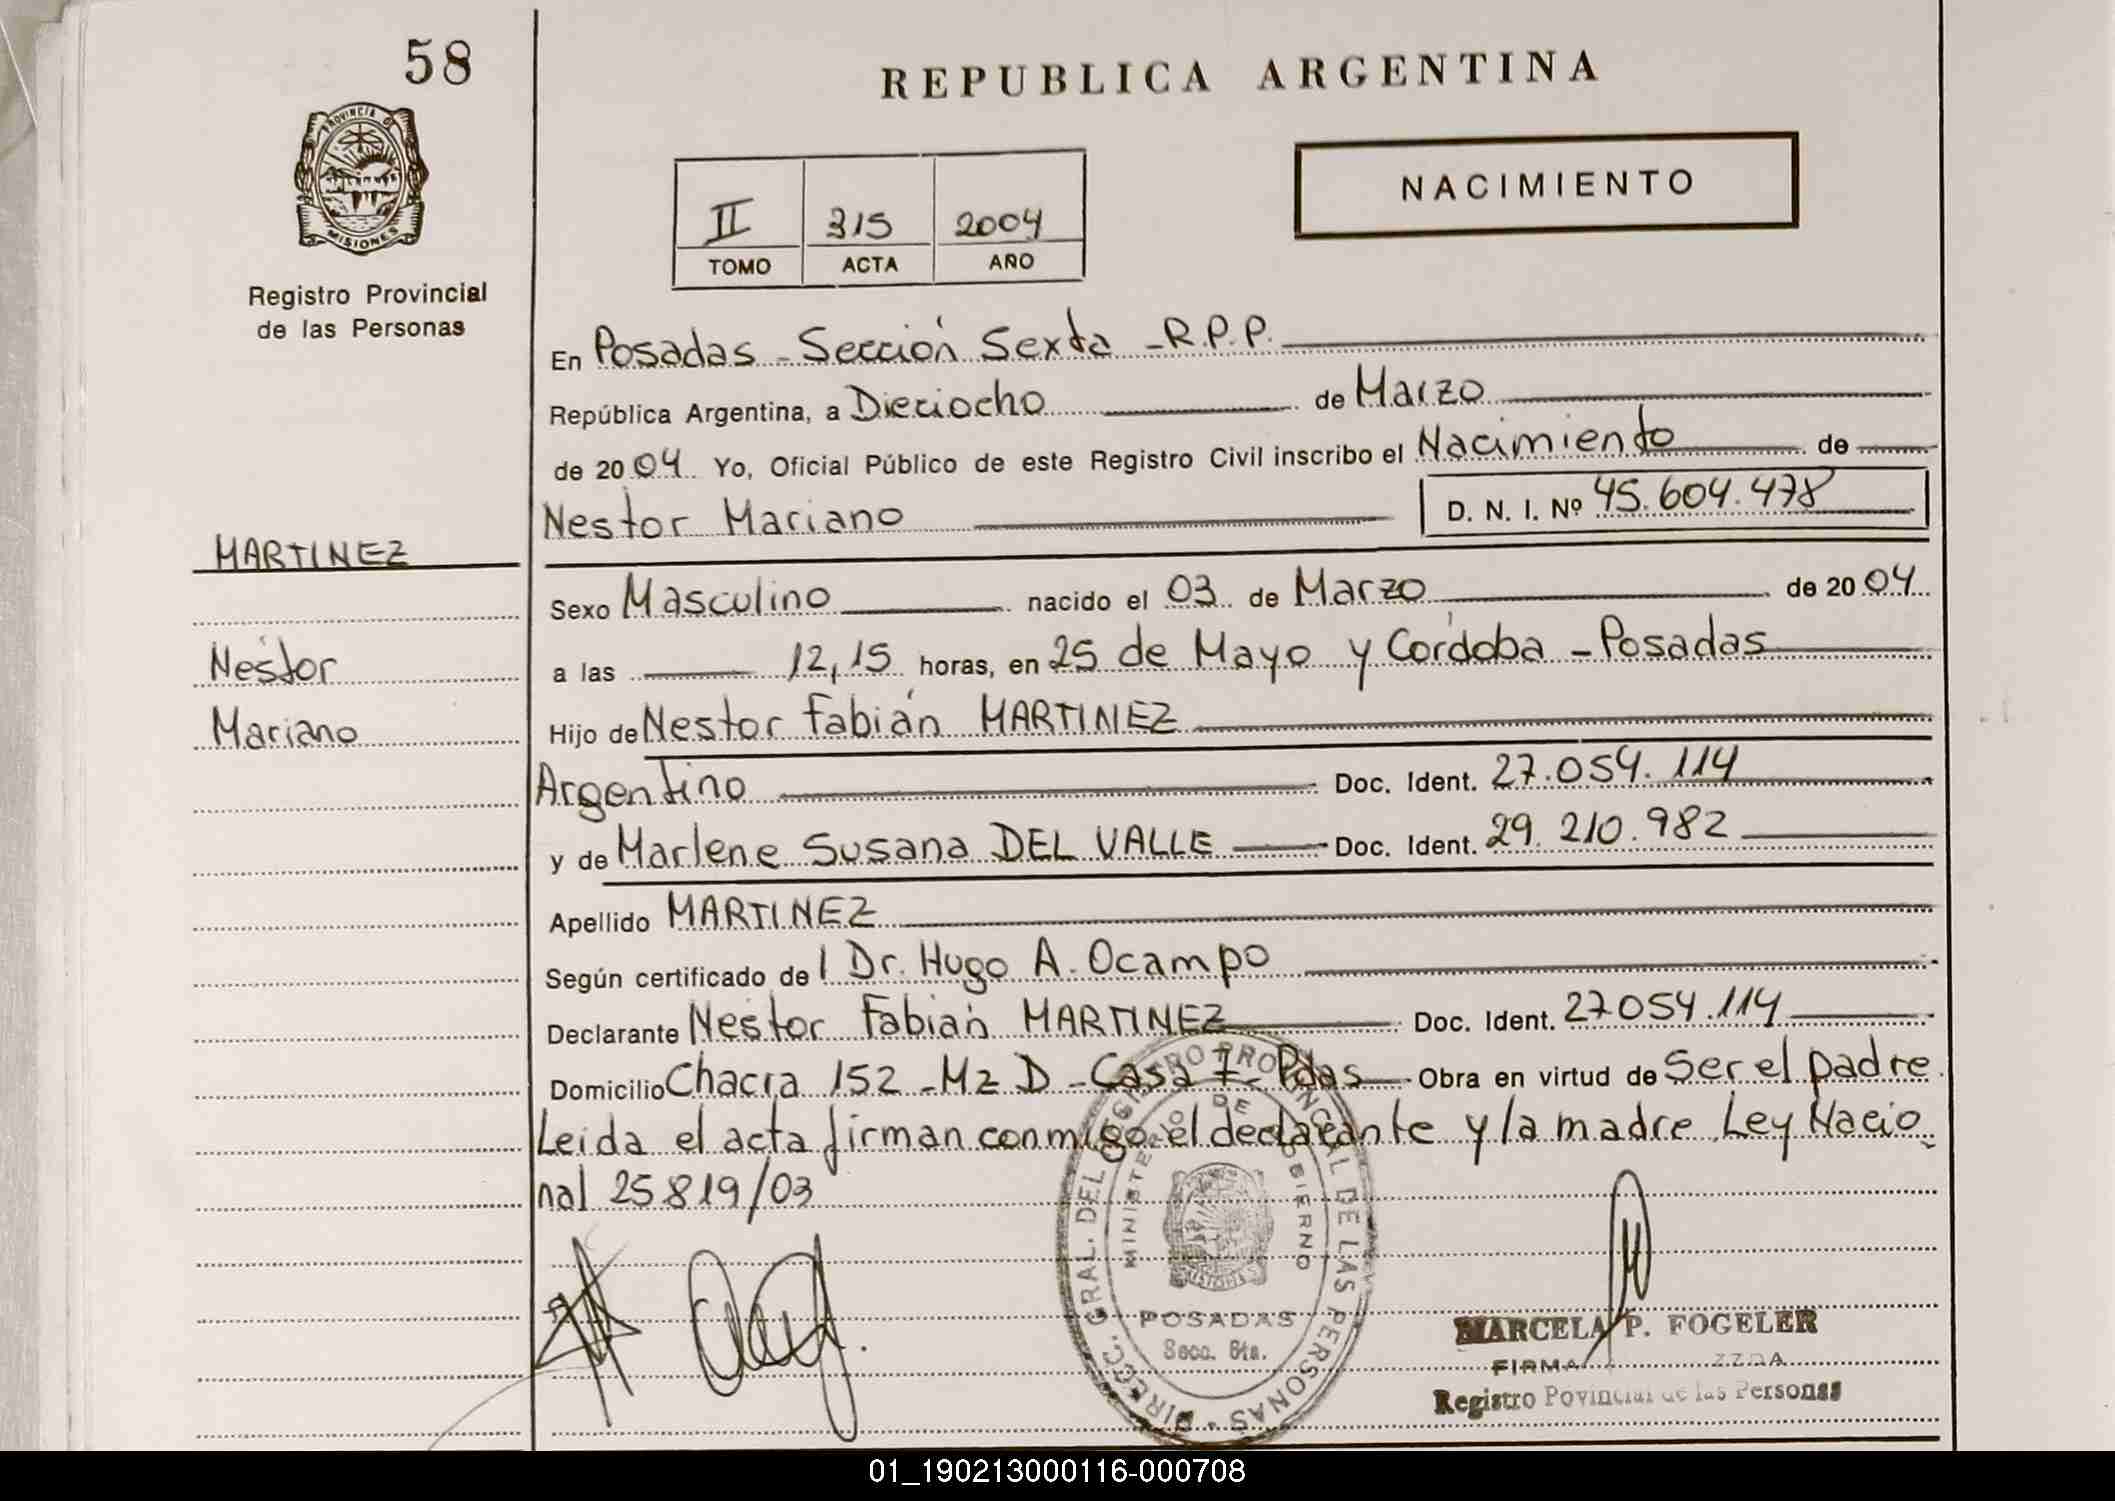 58
REPUBLICA ARGENTINA
PROVINCIA D
MISIONES
NACIMIENTO
II 315 2004
TOMO ACTA AÑO
Registro Provincial
de las Personas
En Posadas - Sección Sexta - R.P.P.
República Argentina, a Dieciocho de Marzo
de 2004 Yo, Oficial Público de este Registro Civil inscribo el Nacimiento de
Nestor Mariano D. N. I. Nº 45.604.478
MARTINEZ
Sexo Masculino nacido el 03 de Marzo de 2004
Nestor
a las 12,15 horas, en 25 de Mayo y Córdoba - Posadas
Mariano
Hijo de Nestor Fabián MARTINEZ
Argentino Doc. Ident. 27.054.114
y de Marlene Susana DEL VALLE Doc. Ident. 29.210.982
Apellido MARTINEZ
Según certificado de l Dr. Hugo A. Ocampo
Declarante Nestor Fabián MARTINEZ Doc. Ident. 27054.114
Domicilio Chacra 152 - Mz D - Casa 7 - Pdas Obra en virtud de Ser el padre
Leida el acta firman conmigo el declarante y la madre Ley Nacio
nal 25819/03
DIRECC. GRAL. DEL REGISTRO PROVINCIAL DE LAS PERSONAS
MINISTERIO DE GOBIERNO
MISIONES
POSADAS
Secc. 6ta.
MARCELA P. FOGELER
FIRMA
Registro Povincial de las Personas
01_190213000116-000708